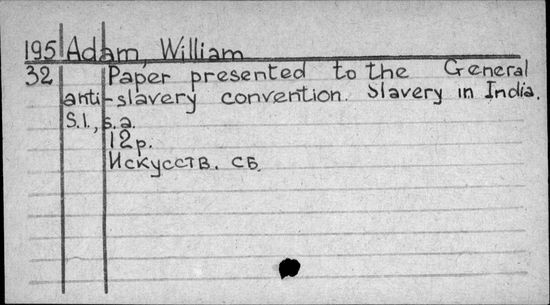 195 Adam, William
32 Paper presented to the General
anti-slavery convention. Slavery in India.
S.l., s.a.
12p.
Искусств. сб.